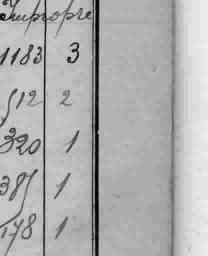 impropre
1183 3
512 2
320 1
385 1
178 1